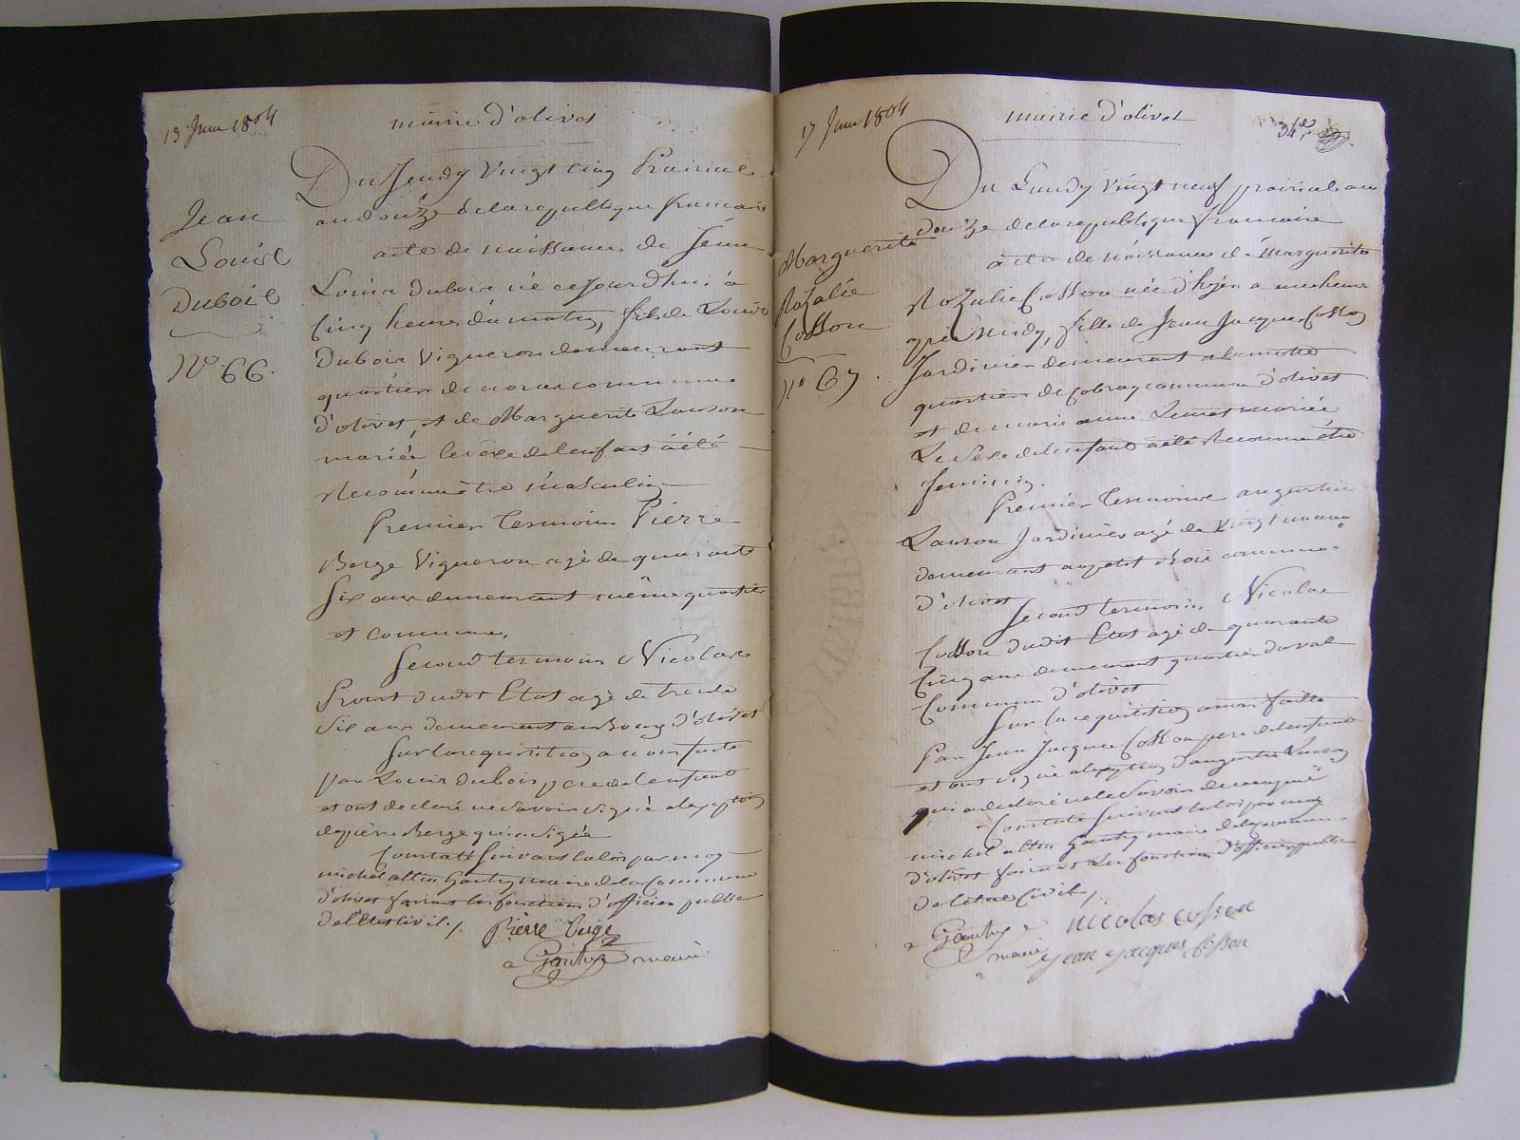 13 Juin 1804
mairie d'olivet
Jean
Louis
Dubois
N° 66.
Du Jeudy Vingt cinq Prairial
an douze de la republique francaise
acte de naissance de Jean
Louis dubois né cejourdhui à
Cinq heures du matin, fils de Louis
Dubois Vigneron demeurant
quartier de commune
d'olivet, et de Marguerite Lauson
mariés le sexe de lenfant à été
Reconnu être masculin
Premier temoin Pierre
Berge Vigneron agé de quarante
Six ans demeurant même quartier
et commune,
Second temoin Nicolas
Prout dudit Etat agé de trente
Six ans demeurant au Bourg d'olivet
Sur la requisition a nous faite
par Louis dubois pere de lenfant
et ont declaré ne Savoir Signé alexeption
de pierre Berge qui a Signé
Constaté Suivant la loi par moy
michel alton Gautry maire de la Commune
d'olivet faisant les fonctions d'officier public
de l'Etat civil ./.
Pierre Berge
Gautry maire
17 Juin 1804
mairie d'olivet
34e
Marguerite
Rozalie
Cosson
N° 67.
Du Lundy Vingt neuf prairial an
douze de la republique francaise
acte de naissance de Marguerite
Rozalie Cosson née d'hyer a une heure
apres Midy, fille de Jean Jacques Cosson
Jardinier demeurant
quartier de commune d'olivet
et de marie anne mariés
Le Sexe de lenfant a été Reconnu être
feminin.
Premier temoin augustin
Lauson Jardinier agé de Vingt ans
demeurant au petit Bois commune
d'olivet
Second temoin Nicolas
Cosson dudit Etat agé de quarante
Cinq ans demeurant quartier du val
Commune d'olivet
Sur la requisition a nous faitte
Par Jean Jacques Cosson pere de lenfant
et ont Signé alexeption d'augustin Lauson
qui a declaré ne le Savoir de ce enquis
Constaté Suivant la loi par moy
michel alton Gautry maire de la commune
d'olivet faisant les fonctions d'officier public
de letat civil ./.
Gautry maire
nicolas cosson
jean jacques cosson